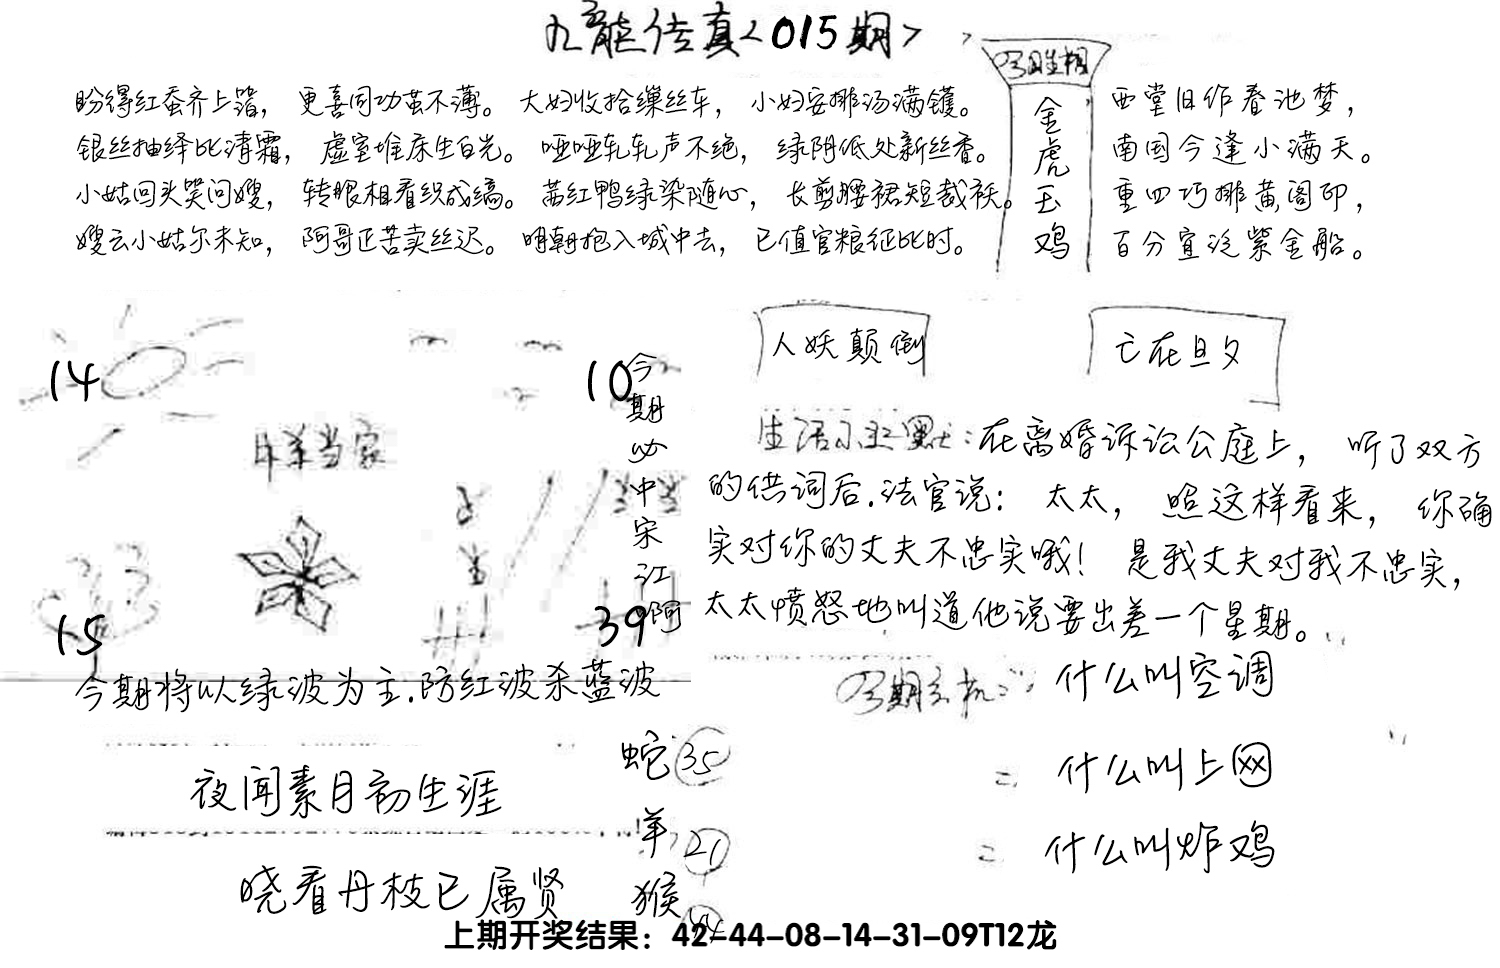 九龙传真<015期>
盼得红蚕齐上箔，更喜同功茧不薄。大妇收拾缫丝车，小妇安排汤满镬。
银丝抽绎比清霜，虚室堆床生白光。哑哑轧轧声不绝，绿阴低处新丝香。
小姑回头笑问嫂，转眼相看织成缟。茜红鸭绿染随心，长剪腰裙短裁袄。
嫂云小姑尔未知，阿哥正苦卖丝迟。明朝抱入城中去，已值官粮征比时。
金虎玉鸡
西堂旧作春池梦，
南国今逢小满天。
重四巧排黄阁印，
百分宜泛紫金船。
14
10
今期必中宋江啊
羊当家
15
39
今期将以绿波为主.防红波杀蓝波
人妖颠倒
亡在旦夕
生活幽默:在离婚诉讼公庭上，听了双方
的供词后.法官说：太太，照这样看来，你确
实对你的丈夫不忠实哦！是我丈夫对我不忠实，
太太愤怒地叫道他说要出差一个星期。
今期玄机: 什么叫空调
= 什么叫上网
= 什么叫炸鸡
夜闻素月初生涯
晓看丹枝已属贤
蛇 35
羊 21
猴
上期开奖结果：42-44-08-14-31-09T12龙